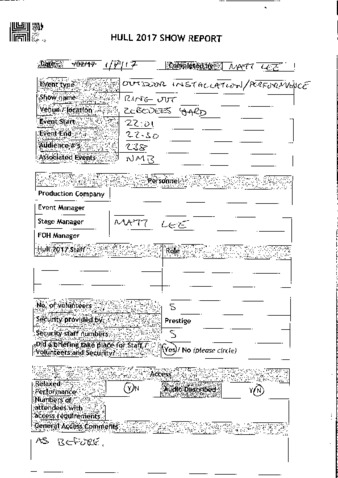 HULL 2017 SHOW REPORT
Date: 1/7/17 Completed by: MATT LEE
Event type OUTDOOR INSTALLATION/PERFORMANCE
Show name RING OUT
Venue / location ZEBEDEES YARD
Event Start 22:01
Event End 22-30
Audience #'s 238
Associated Events NMB
Personnel
Production Company
Event Manager
Stage Manager MATT LEE
FOH Manager
Hull 2017 Staff Role
No. of volunteers 5
Security provided by: Prestige
Security staff numbers 5
Did a briefing take place for Staff / Yes/ No (please circle)
Volunteers and Security?
Access
Relaxed Y/N Audio Described Y/N
Performance
Numbers of
attendees with
access requirements
General Access Comments
AS BEFORE.